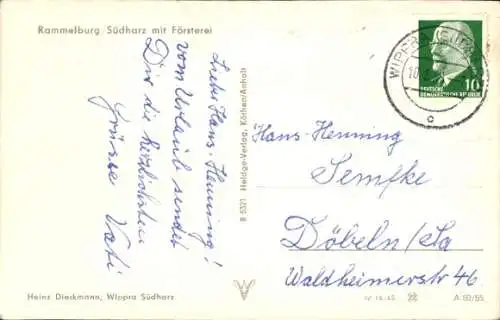 Rammelburg Südharz mit Försterei
Lieber Hans-Henning!
vom Urlaub sendet
Dir die herzlichsten
Grüsse Vati
B 5321 Heldge-Verlag, Köthen/Anhalt
WIPPRA
10
DEUTSCHE
DEMOKRATISCHE REPUBLIK
Hans-Henning
Semfke
Döbeln/Sa
Waldheimerstr 46
Heinz Dieckmann, Wippra Südharz
A 82/65